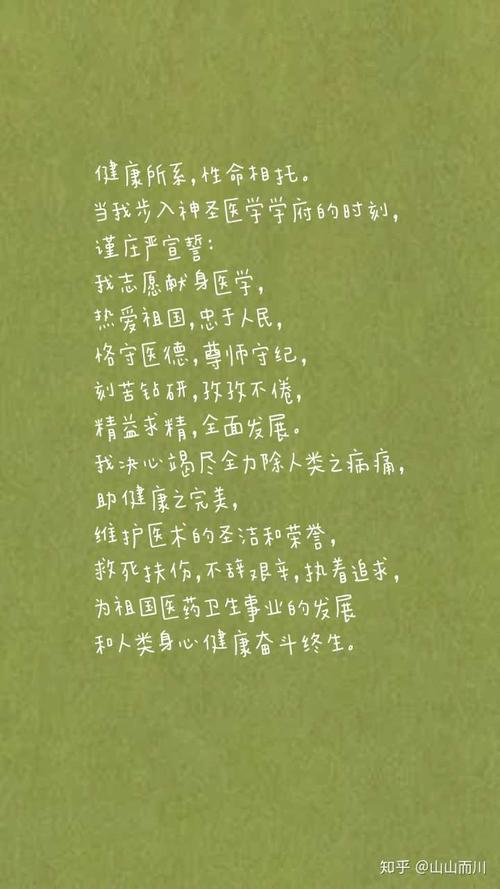 健康所系,性命相托。
当我步入神圣医学学府的时刻,
谨庄严宣誓:
我志愿献身医学,
热爱祖国,忠于人民,
恪守医德,尊师守纪,
刻苦钻研,孜孜不倦,
精益求精,全面发展。
我决心竭尽全力除人类之病痛,
助健康之完美,
维护医术的圣洁和荣誉,
救死扶伤,不辞艰辛,执着追求,
为祖国医药卫生事业的发展
和人类身心健康奋斗终生。
知乎 @山山而川